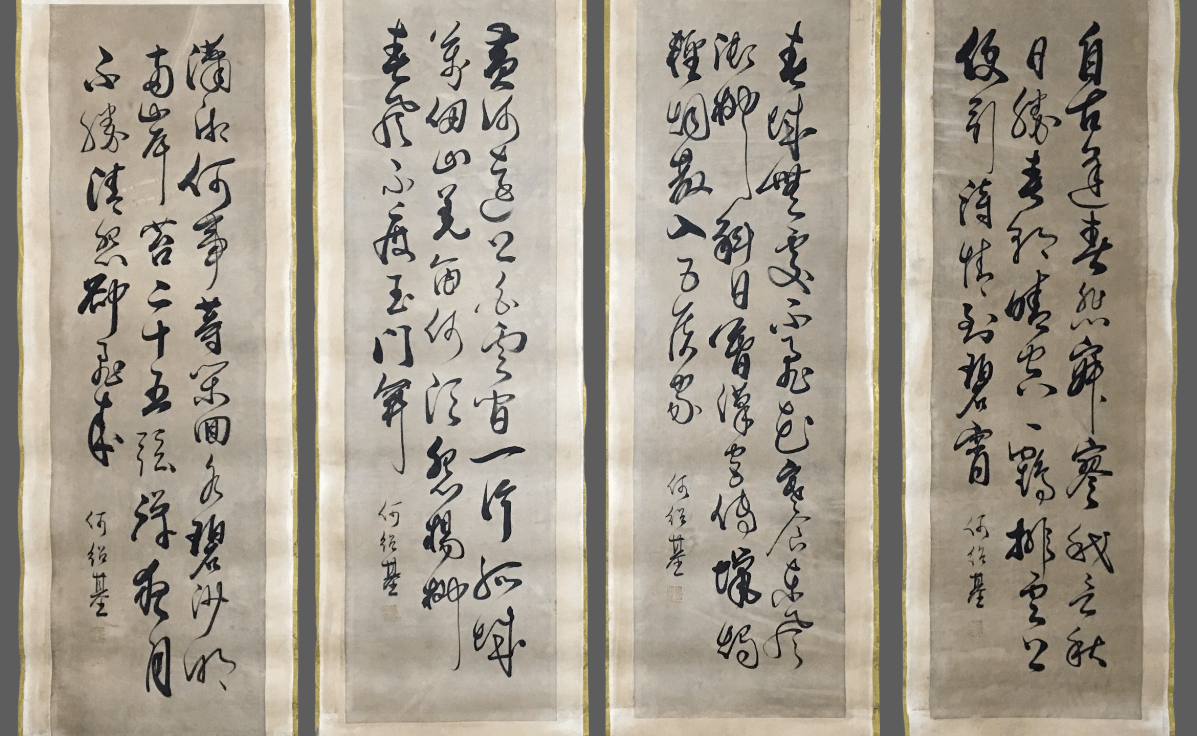 自古逢春悲寂寥我言秋
日勝春朝晴空一鶴排雲上
便引詩情到碧霄
何紹基
春城無處不飛花寒食東風
御柳斜日暮漢宮傳蠟燭
輕烟散入五侯家
何紹基
黃河遠上白雲間一片孤城
萬仞山羌笛何須怨楊柳
春風不度玉門關
何紹基
瀟湘何事等閒回水碧沙明
兩岸苔二十五弦彈夜月
不勝清怨却飛來
何紹基